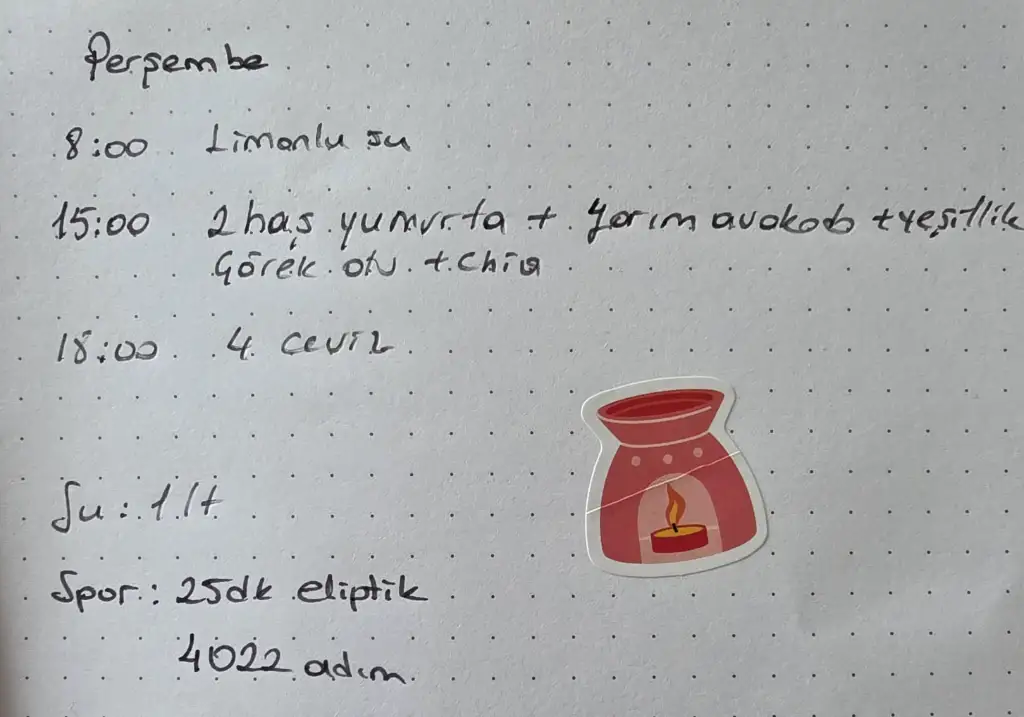 Perşembe
8:00 Limonlu su
15:00 2 haş yumurta + Yarım avokado + yeşillik
Çörek otu + Chia
18:00 4 ceviz
Su: 1 lt
Spor: 25dk eliptik
4022 adım